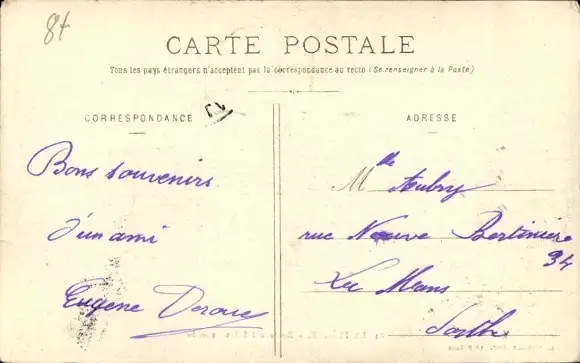 8f
CARTE POSTALE
Tous les pays étrangers n'acceptent pas la correspondance au recto (Se renseigner à la Poste)
CORRESPONDANCE
ADRESSE
Bons souvenirs
d'un ami
Eugène
Mlle Aubry
rue Neuve Bertinière
34
Le Mans
Sarthe